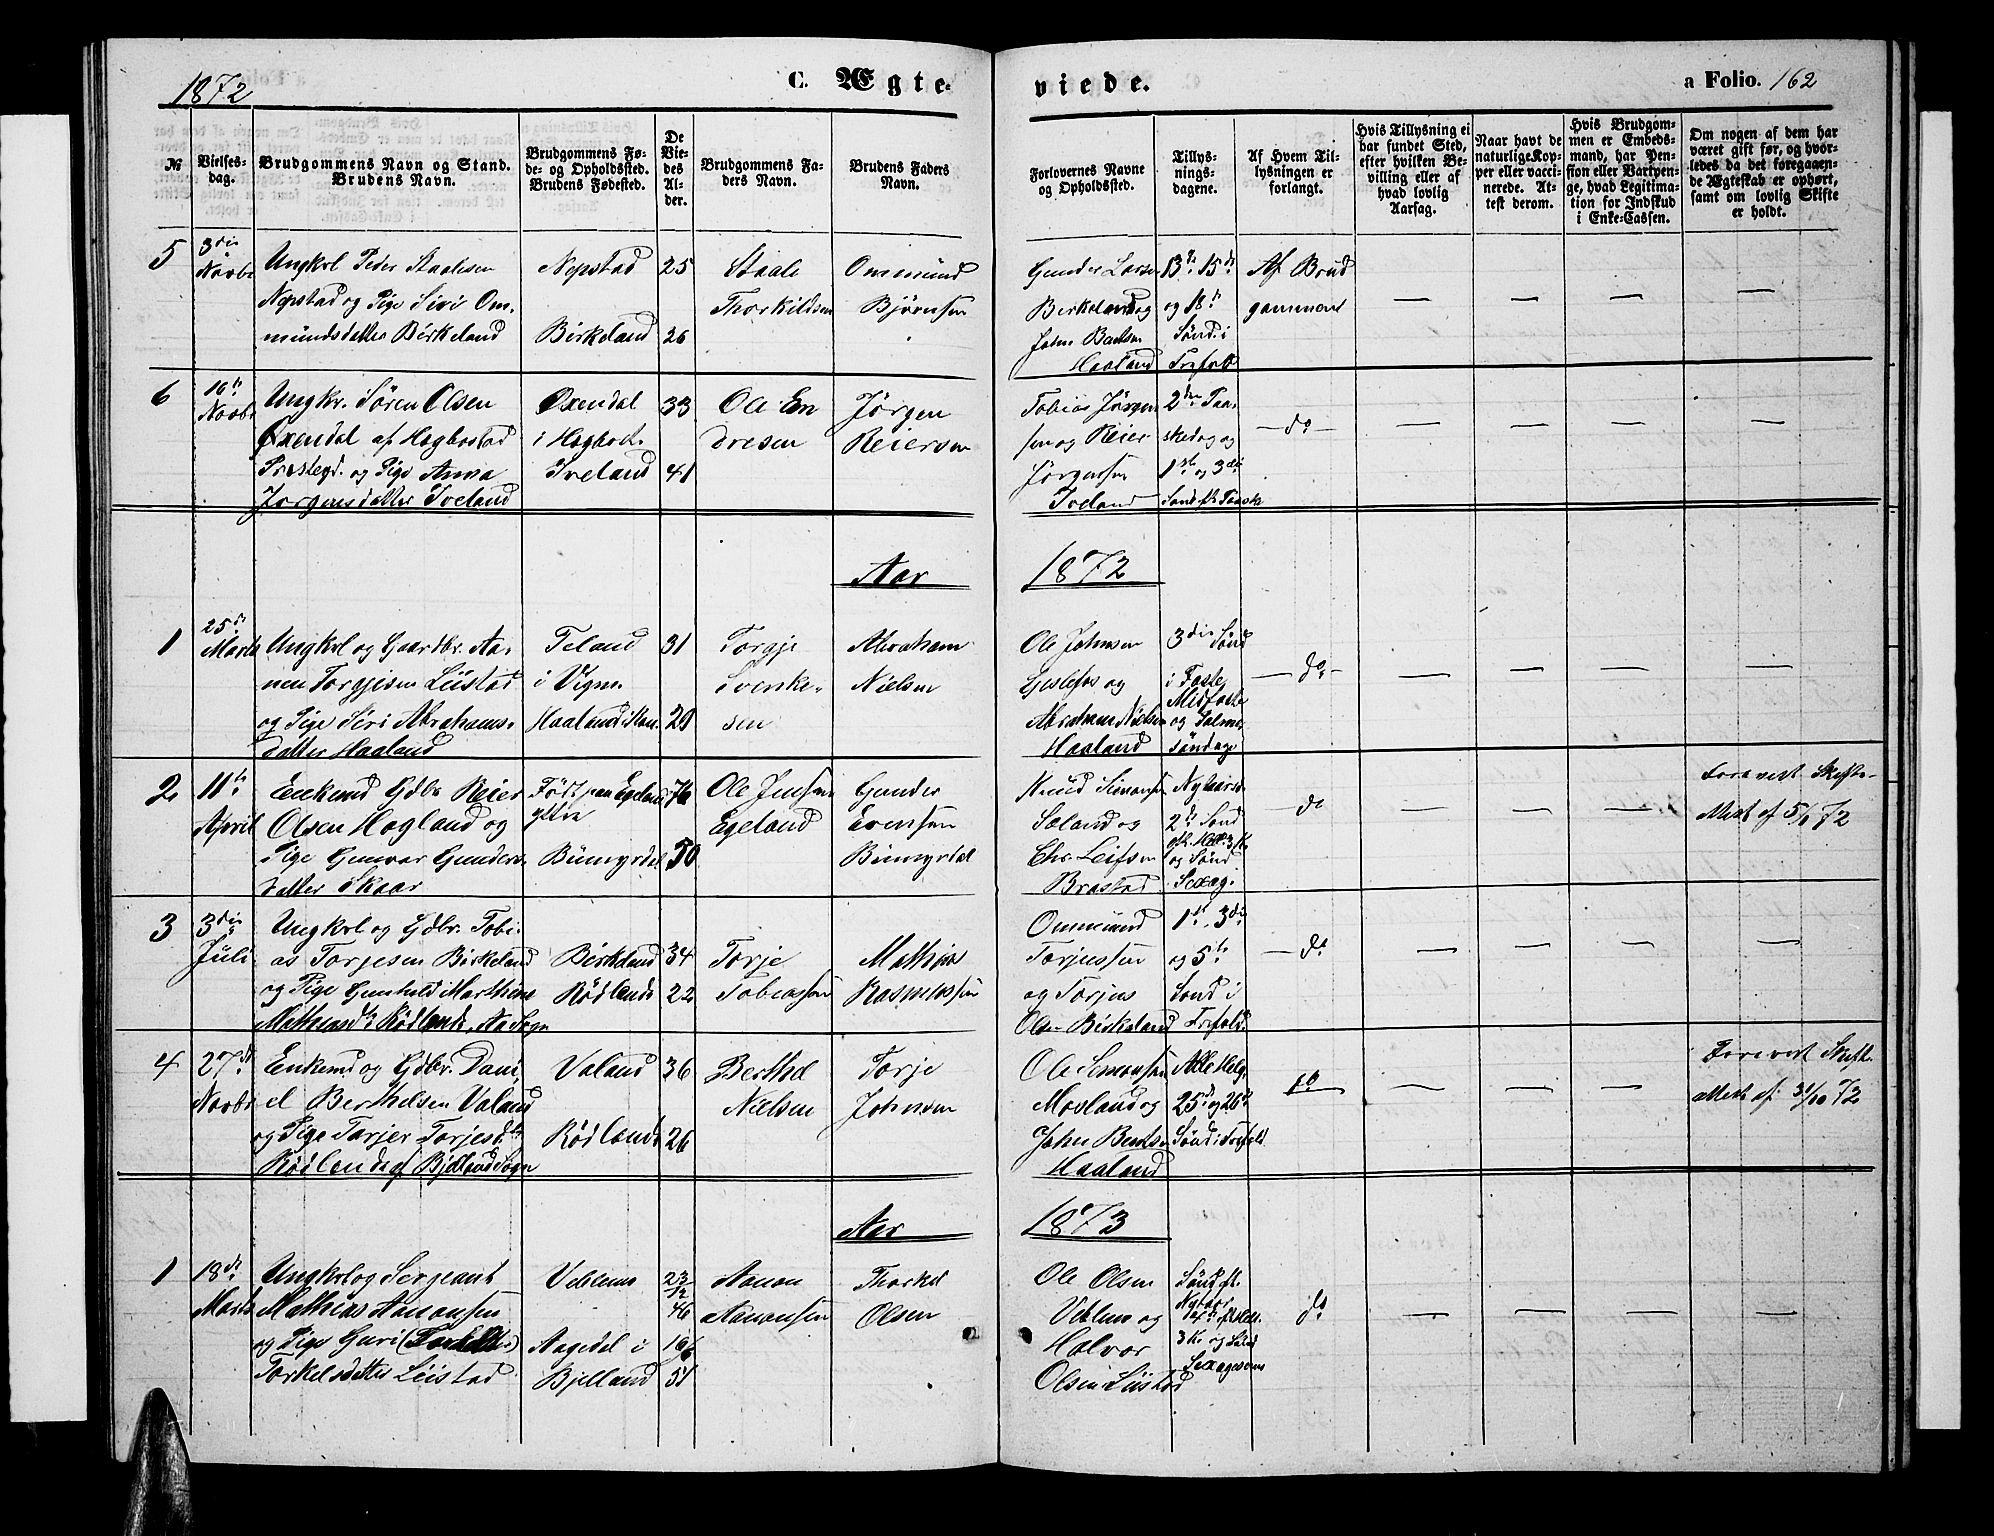 1872
C. Ægte-
viede.
a Folio. 162
№
Vielses-
dag.
Brudgommens Navn og Stand.
Brudens Navn.
Brudgommens Fø-
de- og Opholdssted.
Brudens Fødested.
De
Vie-
des
Al-
der.
Brudgommens Fa-
ders Navn.
Brudens Faders
Navn.
Forlovernes Navne
og Opholdssted.
Tillys-
nings-
dagene.
Af Hvem Til-
lysningen er
forlangt.
Hvis Tillysning ei
har fundet Sted,
efter hvilken Be-
villing eller af
hvad lovlig
Aarsag.
Naar havt de
naturlige Kop-
per eller vacci-
nerede. At-
test derom.
Hvis Brudgom-
men er Embeds-
mand, har Pen-
sion eller Vartpen-
ge, hvad Legitima-
tion for Indskud
i Enke-Cassen.
Om nogen af dem har
været gift før, og hvor-
ledes da det foregaaen-
de Ægteskab er ophørt,
samt om lovlig Skifte
er holdt.
5
3die
Novbr
Ungkrl Peder Staalesen
Nepstad og Pige Siri Om-
mundsdatter Birkeland
Nepstad
Birkeland
25
26
Staale
Thorkildsen
Ommund
Bjørnsen
Gunder Larsen
Birkeland og
John Bentsen
Haaland
13de 15de
og 18de
Sønd. i
Trefold
Af Brud
gommen
6
16de
Novbr
Ungkr. Søren Olsen
Øxendal af Hægbostad
Præstegd. og Pige Anna
Jørgensdatter Iveland
Øxendal
i Hægbost.
Iveland
33
41
Ole En
dresen
Jørgen
Reiersen
Tobias Jørgen
sen og Reier
Jørgensen
Iveland
2den Paa-
skedag og
1ste og 3die
Sønd. eft. Paaske
do
Aar 1872
1
25de
Marts
Ungkrl og Gaardbr. Aa-
nen Torgjisen Leistad
og Pige Siri Abrahams-
datter Haaland
Feland
i Vigm.
Haaland i
31
29
Torgje
Svenke-
sen
Abraham
Nielsen
Ole Johnsen
Gislefos og
Abraham Nielsen
Haaland
3die Sønd
i Faste
Midfaste
og Palme
søndage
do
2
11te
April
Enkemd Gdbr Reier
Olsen Hogland og
Pige Gunvor Gunders
datter Skaar
Født paa Egeland
ytre
Bunnyrdal
76
50
Ole Jensen
Egeland
Gunder
Evensen
Bunnyrdal
Knud Simonsen
Søland og
Chr. Leifsen
Brastad
Nytaarsd.
2de Sønd
eft. Hell. 3 K
og Sønd
Sexag.
do
Forevist Skifte-
Attest af 5/1 72
3
3die
Juli
Ungkrl og Gdbr. Tobi-
as Torjesen Birkeland
og Pige Gunhild Marthine
Mathiasdtr Rødlend, Aa Sogn
Birkeland
Rødland
34
22
Torje
Tobiassen
Mathias
Rasmussen
Ommund
Torjussen
og Torjus
Olsen Birkeland
1ste 3die
og 5te
Sønd i
Trefold.
do
4
27de
Novbr
Enkemd og Gdbr. Dani-
el Berthelsen Valand
og Pige Torjer Torjesdtr
Rødland af Bjelland Sogn
Valand
Rødland
36
26
Berthel
Nielsen
Torje
Johnsen
Ole Simonsen
Mosland og
John Bentsen
Haaland
Alle Helg.
25de og 26de
Sønd i Trefold.
do
Forevist Skifte
Attest af 31/10 72
Aar 1873
1
18de
Marts
Ungkrl og Sergeant
Mathias Aanonsen
og Pige Guri
Torkelsdatter Leistad
Veblem
Aagedal i
Bjelland
23
Aanon
Aanonsen
Thorkel
Olsen
Ole Olsen
Veblem og
Halvor
Olsen Leistad
Sønd eft.
Nytaar
3 K. og
Sexagesima
do